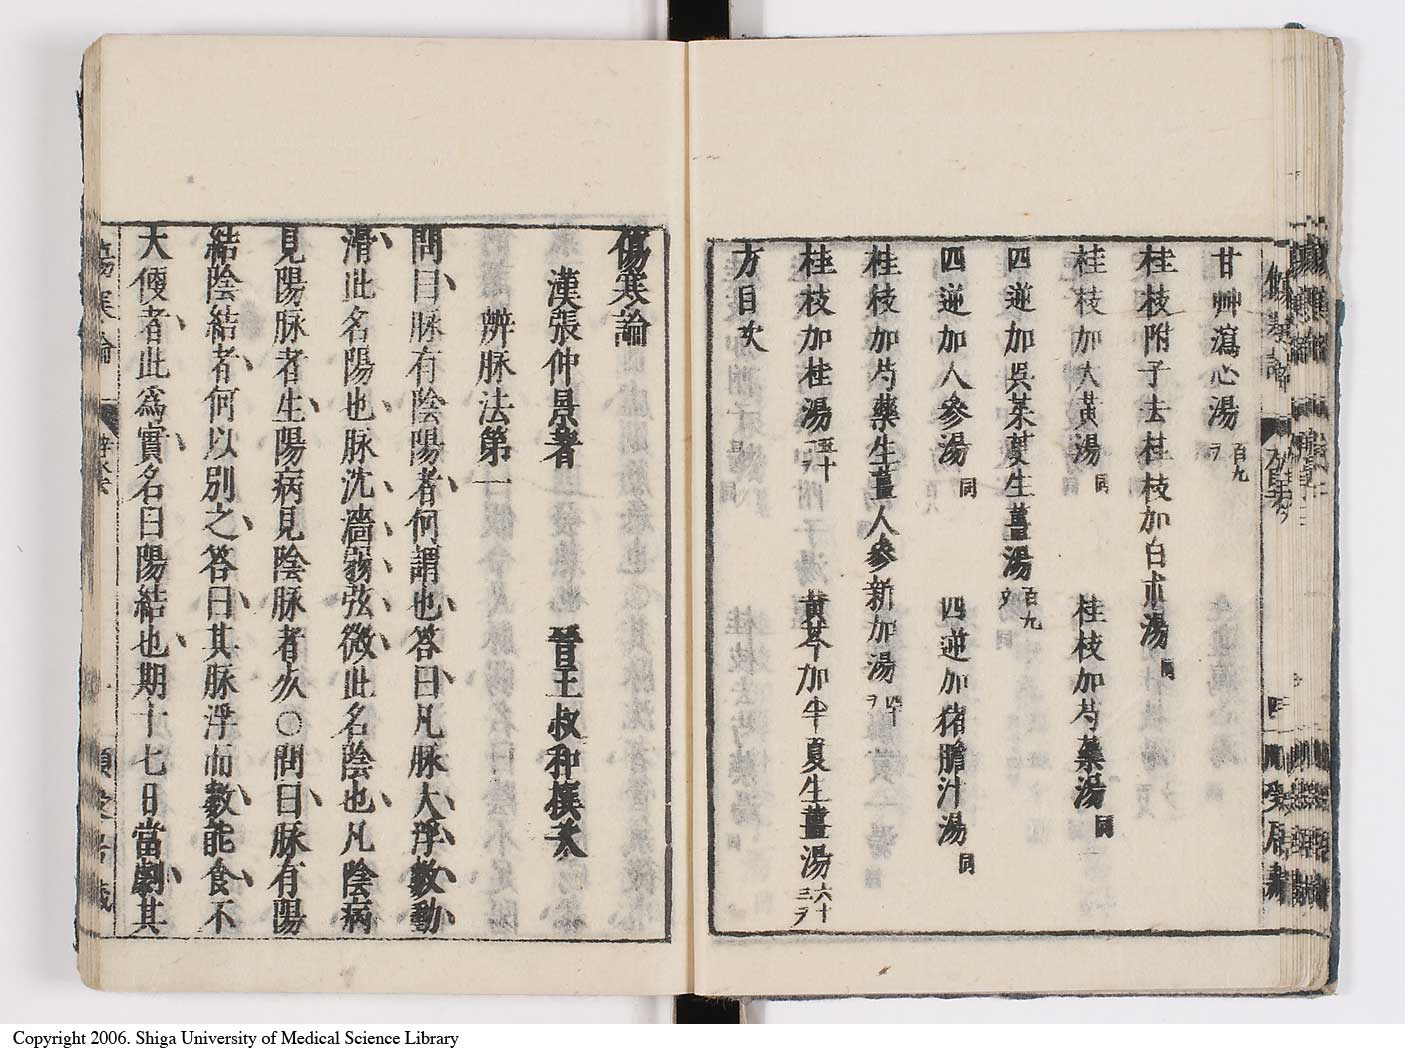 甘艸瀉心湯 百九ヲ
桂枝附子去桂枝加白朮湯 同
桂枝加大黃湯 同 桂枝加芍藥湯 同
四逆加吳茱萸生薑湯 百九ヌ
四逆加人參湯 同 四逆加猪膽汁湯 同
桂枝加芍藥生薑人參新加湯 四十ヲ
桂枝加桂湯 五十ヲ 黃芩加半夏生薑湯 六十三ヲ
方目次
傷寒論
漢張仲景著 晉王叔和撰次
辨脉法第一
問曰脉有陰陽者何謂也答曰凡脉大浮數動
滑此名陽也脉沈濇弱弦微此名陰也凡陰病
見陽脉者生陽病見陰脉者死○問曰脉有陽
結陰結者何以別之答曰其脉浮而數能食不
大便者此爲實名曰陽結也期十七日當劇其
傷寒論
Copyright 2006. Shiga University of Medical Science Library